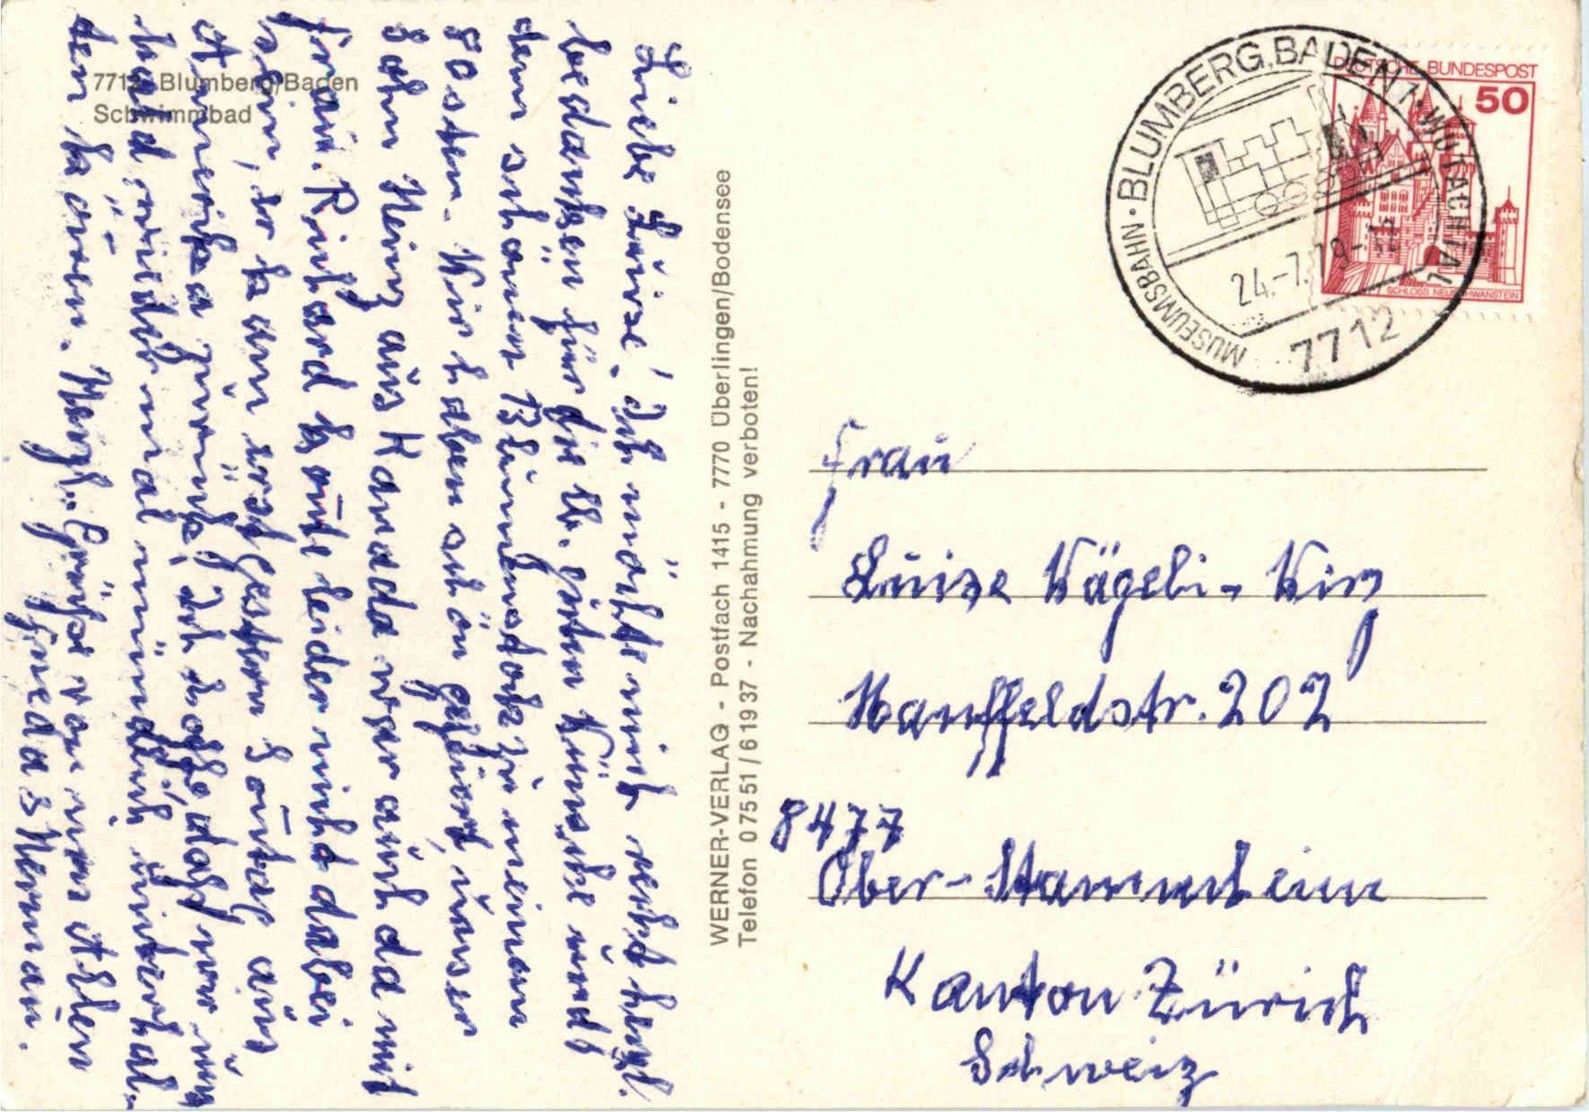 7712 Blumberg/Baden
Schwimmbad
Liebe Luise! Ich möchte mich recht herzl.
bedanken für die lb. guten Wünsche und
den schönen Blumenstock zu meinem
80sten. Wir haben schön gefeiert, unser
Sohn Heinz aus Kanada war auch da mit
Frau. Richard konnte leider nicht dabei
sein, er kam erst gestern heute aus
Amerika zurück. Ich hoffe, dass wir uns
bald wieder mal mündlich unterhal-
ten können. Herzl. Grüße von uns Allen
Frieda & Herman.
WERNER-VERLAG - Postfach 1415 - 7770 Überlingen/Bodensee
Telefon 0 75 51 / 6 19 37 - Nachahmung verboten!
MUSEUMSBAHN · BLUMBERG, BADEN 1 · WUTACHTAL
24.-7.79-12
7712
DEUTSCHE BUNDESPOST
50
SCHLOSS NEUSCHWANSTEIN
Frau
Luise Wägeli-Wirz
Hanffeldstr. 202
8477
Ober-Stammheim
Kanton Zürich
Schweiz